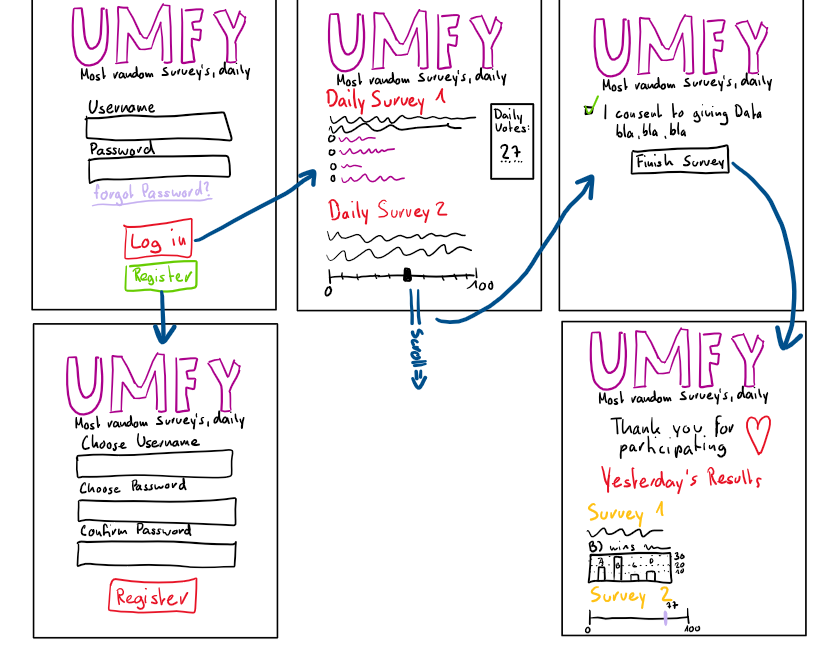 UMFY
Most random Survey's, daily
Username
Password
forgot Password?
Log in
Register
UMFY
Most random Survey's, daily
Daily Survey 1
Daily
Votes:
27
Daily Survey 2
0
100
Scroll
UMFY
Most random Survey's, daily
I consent to giving Data
bla, bla, bla
Finish Survey
UMFY
Most random Survey's, daily
Choose Username
Choose Password
Confirm Password
Register
UMFY
Most random Survey's, daily
Thank you for
participating
Yesterday's Results
Survey 1
B) wins
30
20
10
Survey 2
77
0
100